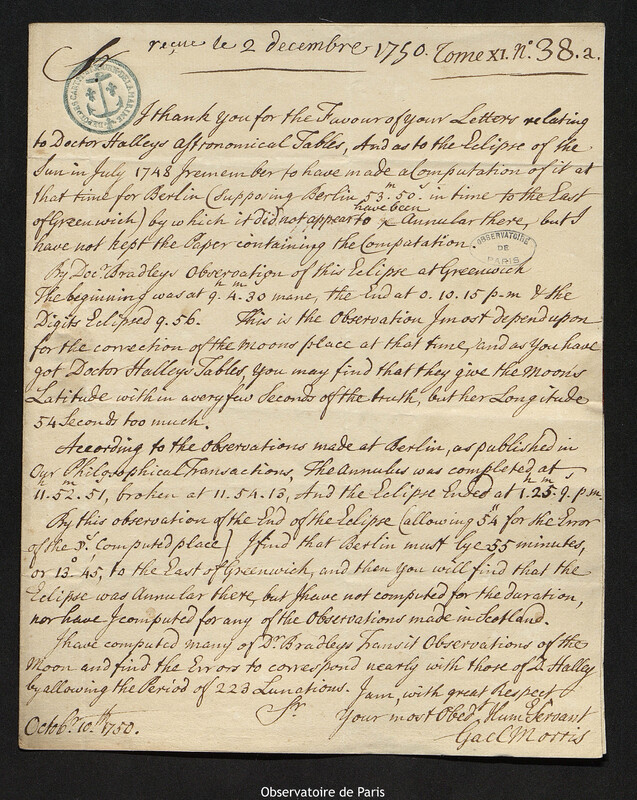 Sr
reçue le 2 decembre 1750. Tome XI. N.º 38. a.
DEPOT DES CARTES DE LA MARINE
I thank you for the Favour of your Letters relating
to Doctor Halleys astronomical Tables, And as to the Eclipse of the
Sun in July 1748 I remember to have made a Computation of it at
that time for Berlin (supposing Berlin 53.m 50.s in time to the East
of Greenwich) by which it did not appear to have been Annular there, but I
have not kept the Paper containing the Computation.
OBSERVATOIRE DE PARIS
By Doc.r Bradleys Observation of this Eclipse at Greenwich
The beginning was at 9.h 4.m 30 mane, the End at 0. 10. 15 p.m & the
Digits Eclipsed 9. 56. This is the Observation I most depend upon
for the correction of the moons place at that time, and as you have
got Doctor Halleys Tables, you may find that they give the Moons
Latitude within a very few Seconds of the truth, but her Longitude
54 Seconds too much.
According to the Observations made at Berlin, as published in
Our Philosophical Transactions, The Annulus was completed at
11.h 52.m 51, broken at 11. 54. 13, And the Eclipse Ended at 1.h 25.m 9.s p.m.
By this observation of the End of the Eclipse (allowing 54" for the Error
of the ☽s Computed place) I find that Berlin must lye 55 minutes,
or 13.° 45, to the East of Greenwich, and then you will find that the
Eclipse was Annular there, but I have not computed for the duration,
nor have I computed for any of the Observations made in Scotland.
I have computed many of Dr. Bradleys Transit Observations of the
Moon and find the Errors to correspond nearly with those of D. Halley
by allowing the Period of 223 Lunations. I am, with great Respect
Sr.
Your most Obed.t Hum.e Servant
Gael Morris
Octob.r 10.th 1750.
Observatoire de Paris